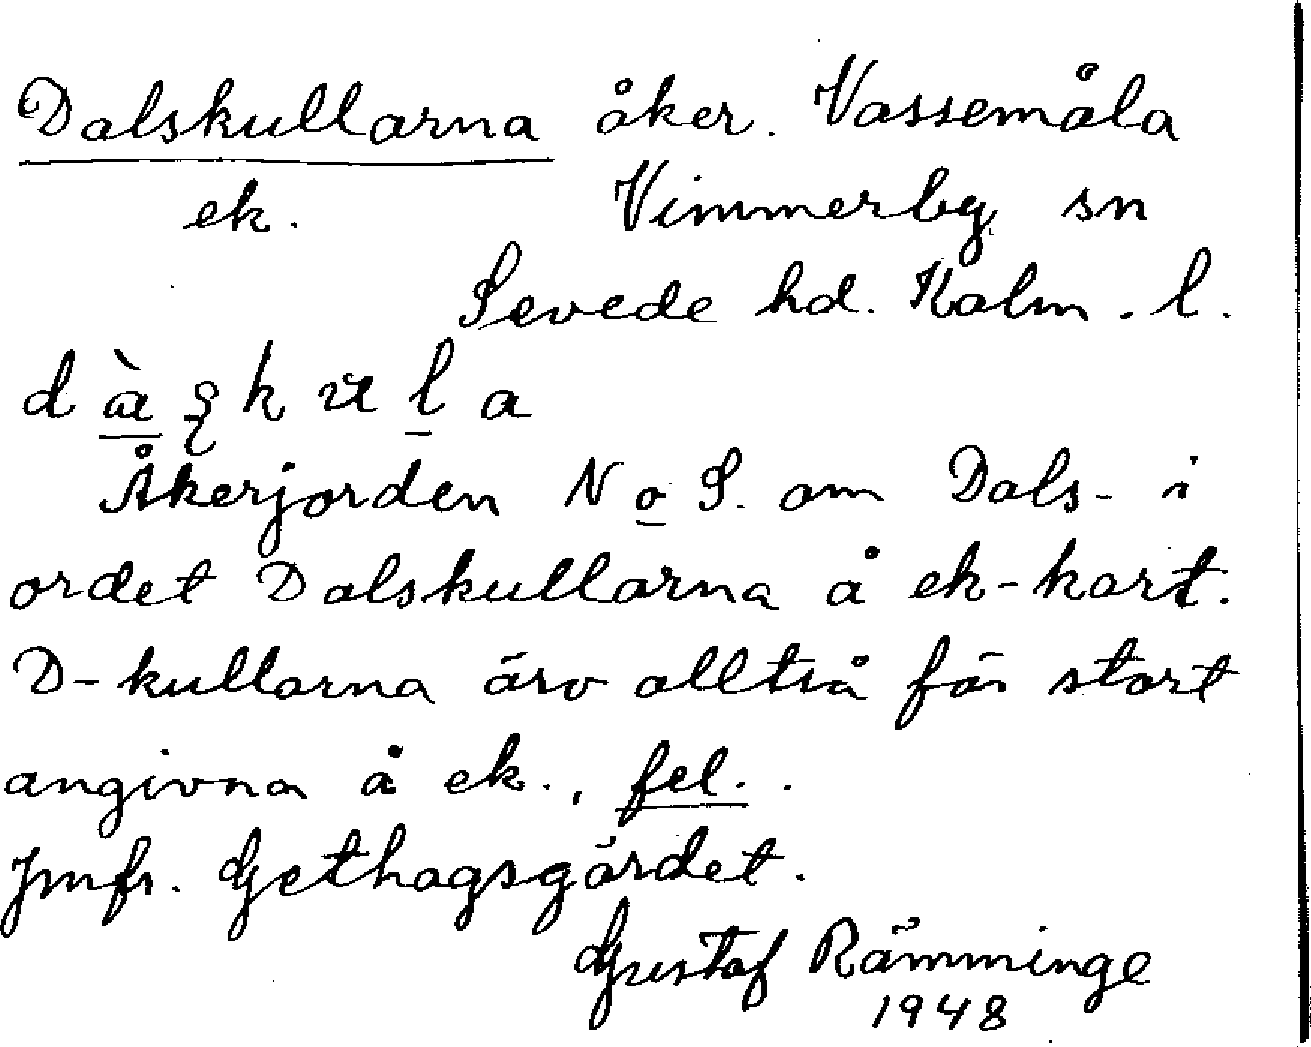 Dalskullarna åker. Vassemåla
ek. Vimmerby sn
Sevede hd. Kalm. l.
Åkerjorden N o S. om Dals- i
ordet Dalskullarna å ek-kart.
D-kullarna äro alltså för stort
angivna å ek., fel..
Jmfr. Gethagsgärdet.
Gustaf Rämminge
1948